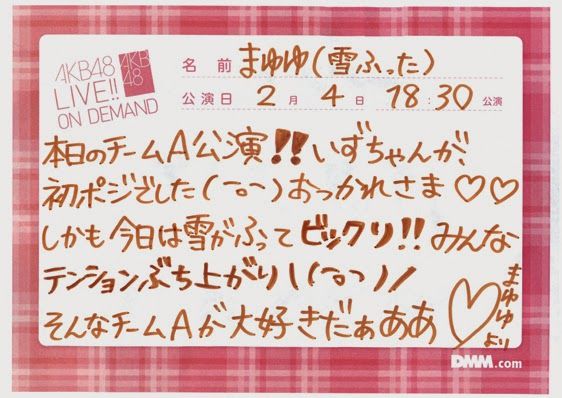 AKB48
LIVE!!
ON DEMAND
AKB
48
名 前 まゆゆ(雪ふった)
公演日 2 月 4 日 18:30 公演
本日のチームA公演!!いずちゃんが、
初ポジでした(ーoー)おつかれさま♡♡
しかも今日は雪がふってビックリ!!みんな
テンションぶち上がり\(ーoー)/
そんなチームAが大好きだぁああ
♡まゆゆより
DMM.com